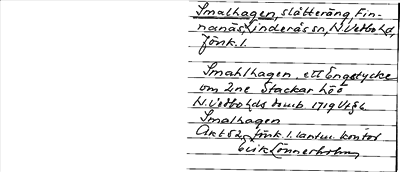 Smalhagen, slåtteräng, Fin-
nanäs, Linderås sn, N. Vedbo hd,
Jönk. l.
Smahlhagen, ett Engstycke
om 2ne Stackar höö
N. Vedbo hds domb 1719 Vt §2
Smalhagen
Akt 52, Jönk. l. lantm. kontor
Erik Lönnerholm